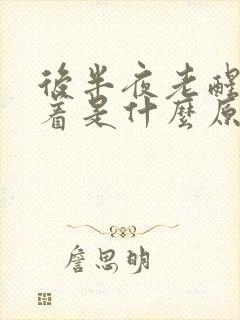 後半夜老醒
着是什麼原
詹思明